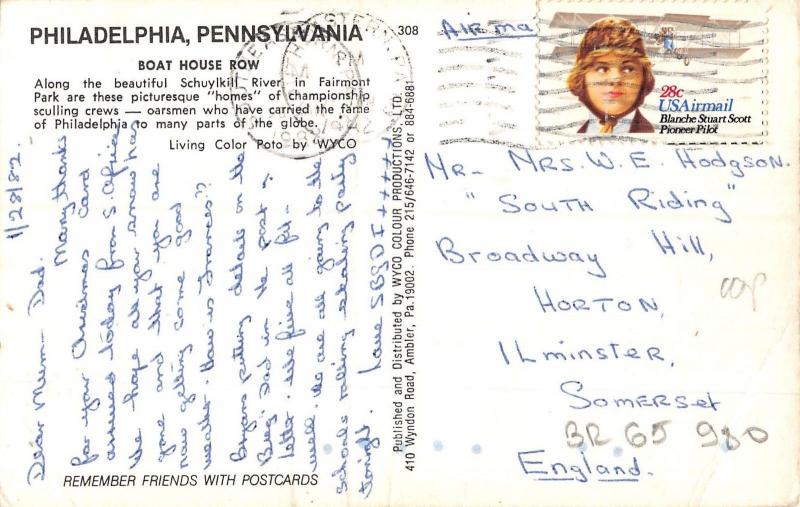 PHILADELPHIA, PENNSYLVANIA
308
BOAT HOUSE ROW
Along the beautiful Schuylkill River in Fairmont
Park are these picturesque "homes" of championship
sculling crews — oarsmen who have carried the fame
of Philadelphia to many parts of the globe.
Living Color Poto by WYCO
1/28/82
Dear Mum - Dad.
Many thanks
for your Christmas Card
arrived today from S. Africa
We hope all your snow has
gone and that you are
now getting some good
weather. How is Frances??
Bryans putting details on the
Dad in the post
letter. We five all fit -
well. We are all going to the
Schools rolling skating Party
tonight. Love SBJD I ++++
REMEMBER FRIENDS WITH POSTCARDS
Published and Distributed by WYCO COLOUR PRODUCTIONS, LTD.
410 Wyndon Road, Ambler, Pa.19002. Phone 215/646-7142 or 884-6881
Air Ma
28c
USAirmail
Blanche Stuart Scott
Pioneer Pilot
Mr - Mrs. W. E. Hodgson.
"South Riding"
Broadway Hill,
Horton,
Ilminster,
Somerset
BR 65 980
England.